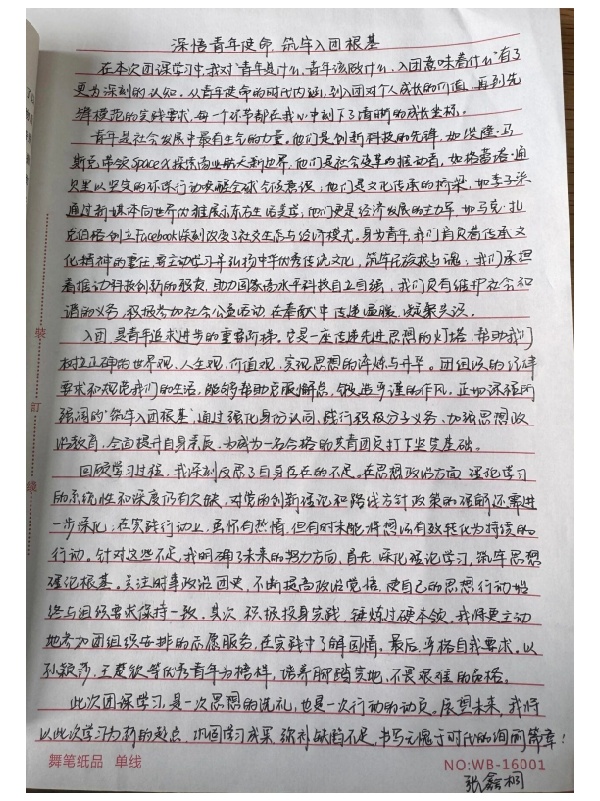 深悟青年使命 筑牢入团根基
在本次团课学习中,我对“青年是什么,青年该做什么,入团意味着什么”有了
更为深刻的认知。从青年使命的时代内涵,到入团对个人成长的价值,再到先
锋模范的实践要求,每一个环节都在我心中刻下了清晰的成长坐标。
青年是社会发展中最有生气的力量。他们是创新科技的先锋,如埃隆·马
斯克带领SpaceX探索商业航天新边界,他们是社会变革的推动者,如格蕾塔·通
贝里以坚定的环保行动唤醒全球合作意识;他们是文化传承的桥梁,如李子柒
通过新媒体向世界推展示东方生活美学;他们更是经济发展的主力军,如马克·扎
克伯格创立Facebook深刻改变了社交生态与经济模式。身为青年,我们肩负着传承文
化精神的责任,要主动学习并弘扬中华优秀传统文化,筑牢民族根与魂;我们承担
着推动科技创新的职责,助力国家高水平科技自立自强,我们负有维护社会和
谐的义务,积极参加社会公益活动,在奉献中传递温暖,凝聚共识。
入团,是青年追求进步的重要阶梯。它是一座传递先进思想的灯塔,帮助我们
树立正确的世界观、人生观、价值观,实现思想的淬炼与升华。团组织的纪律
要求和规范我们的生活,能够帮助克服懈怠,锻造严谨的作风。正如课程所
强调的“筑牢入团根基”,通过强化身份认同,践行积极分子义务、加强思想政
治教育,全面提升自身素质,为成为一名合格的共青团员打下坚实基础。
回顾学习过程,我深刻反思了自身存在的不足。在思想政治方面,理论学习
的系统性和深度仍有欠缺,对党的创新理论和路线方针政策的理解还需进
一步深化;在实践行动上,虽怀有热情,但有时未能将想法有效转化为持续的
行动。针对这些不足,我明确了未来的努力方向。首先,深化理论学习,筑牢思想
理论根基。关注时事政治团史,不断提高政治觉悟,使自己的思想行动始
终与组织要求保持一致。其次,积极投身实践,锤炼过硬本领,我将更主动
地参加团组织安排的志愿服务,在实践中了解国情。最后,严格自我要求。以
孙颖莎,王楚钦等优秀青年为榜样,培养脚踏实地、不畏艰难的品格。
此次团课学习,是一次思想的洗礼,也是一次行动的动员。展望未来,我将
以此次学习为新的起点,巩固学习成果,弥补缺陷不足,书写无愧于时代的闪耀篇章!
舞笔纸品 单线 NO:WB-16001
张鑫桐
装
订
线